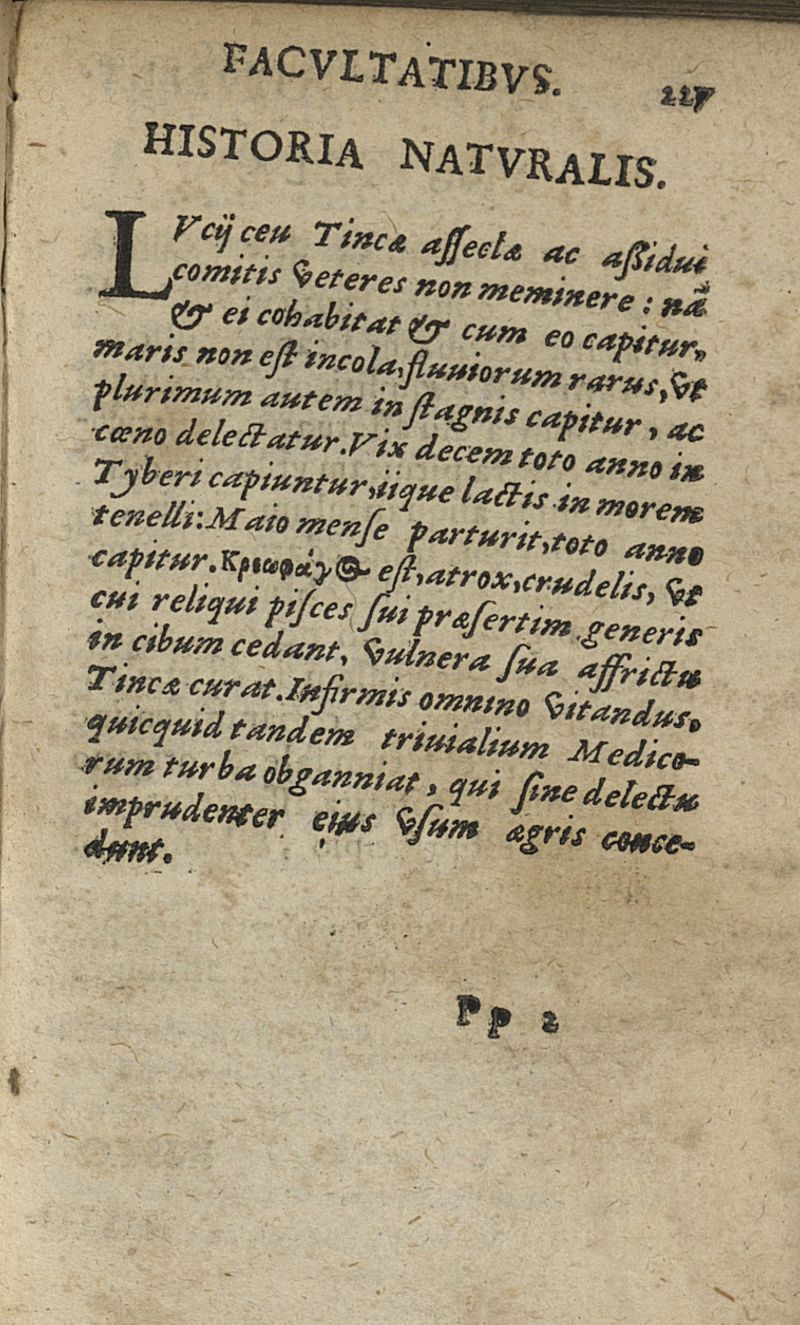 FACVLTATIBVS.
HISTORIA NATVRALIS.
LVcij ceu Tincæ asseclæ ac assidui
comitis veteres non meminere: nā
& ei cohabitat & cum eo capitur,
maris non est incola, fluuiorum rarus, vt
plurimum autem in stagnis capitur, ac
cœno delectatur. Vix decem toto anno in
Tyberi capiuntur, iique lactis in morem
tenelli: Maio mense parturit, toto anno
capitur. est, atrox, crudelis, vt
cui reliqui pisces sui præsertim generis
in cibum cedant, vulnera sua affrictu
Tincæ curat. Infirmis omnino vitandus,
quicquid tandem triuialium Medico-
rum turba obganniat, qui sine delectu
imprudenter eius vsum ægris conce-
dunt.
Pp 2